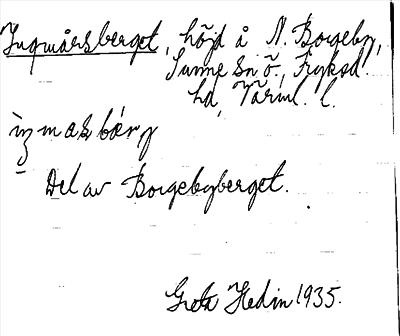 Ingmårsberget, höjd å N. Borgeby,
Sunne sn ö., Fryksd.
hd, Värml. l.
ìŋmasbærj
Del av Borgebyberget.
Greta Hedin 1935.